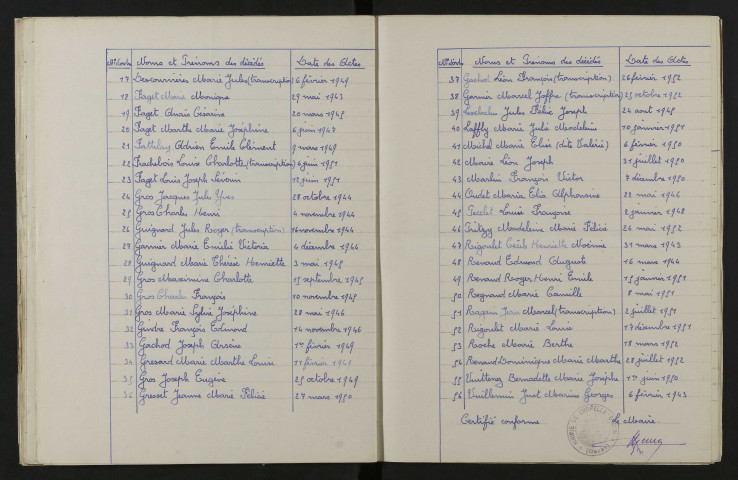 N° d'ordre Noms et Prénoms des décédés Date des Actes
17 Marie Jules (transcription) 6 février 1949
18 Paget Marie Monique 29 mai 1943
19 Paget Anaïs Césarine 20 mars 1945
20 Paget Marthe Marie Joséphine 6 juin 1947
21 Adrien Emile Clément 9 mars 1949
22 Louis Charlotte (transcription) 4 juin 1951
23 Paget Louis Joseph 12 juin 1951
24 Gros Jacques Jules Yves 28 octobre 1944
25 Gros Charles Henri 4 novembre 1944
26 Guignard Jules Roger (transcription) 16 novembre 1944
27 Garnier Marie Emilie Victoria 4 décembre 1944
28 Guignard Marie Thérèse Henriette 3 mai 1945
29 Gros Maximine Charlotte 15 septembre 1945
30 Gros Charles François 10 novembre 1945
31 Gros Marie Sylvie Joséphine 28 mai 1946
32 Gindre François Edmond 14 novembre 1946
33 Gachod Joseph Arsène 1er février 1949
34 Gresard Marie Marthe Louise 11 février 1949
35 Gros Joseph Eugène 25 octobre 1949
36 Gresset Jeanne Marie Félicie 27 mars 1950
N° d'ordre Noms et Prénoms des décédés Date des Actes
37 Gachod Léon François (transcription) 26 février 1952
38 Garnier Marcel Joffre (transcription) 25 octobre 1952
39 Jules Félix Joseph 24 août 1945
40 Laffly Marie Julie Madeleine 10 janvier 1951
41 Michel Marie Elise (dite Valérie) 6 février 1951
42 Léon Joseph 31 juillet 1950
43 François Victor 7 décembre 1950
44 Oudet Maria Elia Alphonsine 22 mai 1946
45 Louise Françoise 2 janvier 1948
46 Madeleine Marie Félicie 26 mai 1952
47 Rigoulet Cécile Henriette Noémie 31 mars 1943
48 Renaud Edmond Auguste 16 mars 1944
49 Renaud Roger Henri Emile 15 janvier 1951
50 Regnaud Marie Camille 8 mai 1951
51 Jean Marcel (transcription) 2 juillet 1951
52 Rigoulet Marie Louise 17 décembre 1951
53 Roche Marie Berthe 18 mars 1952
54 Renaud Dominique Marie Marthe 28 juillet 1952
55 Bernadette Marie Josèphe 1er juin 1950
56 Vuillemin Just Marius Georges 6 février 1943
Certifié conforme Le Maire